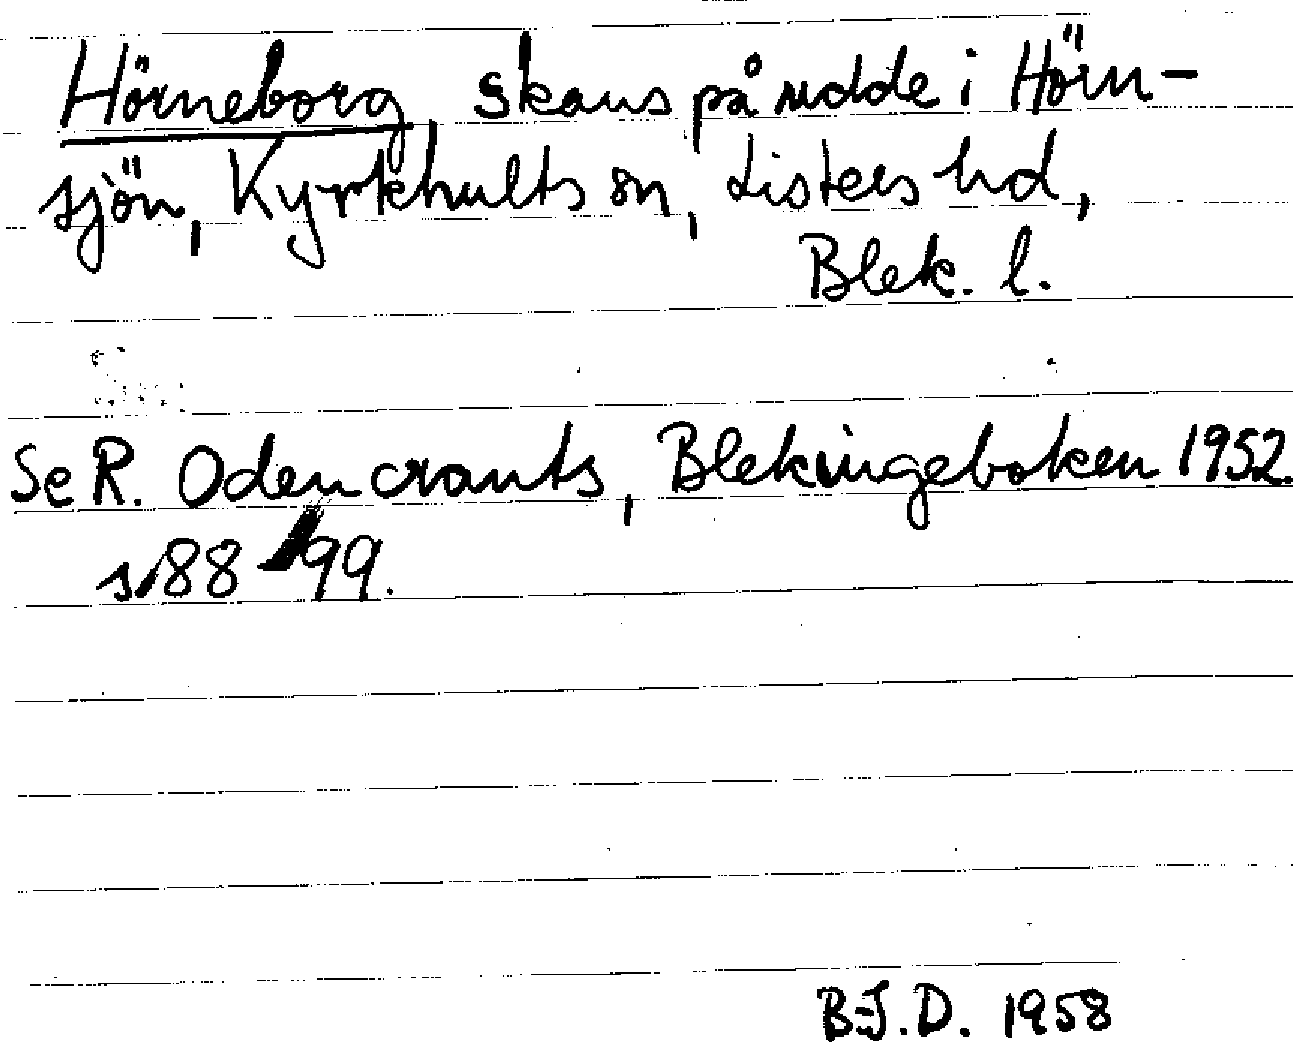 Hörneborg, skans på udde i Hörn-
sjön, Kyrkhults sn, Listers hd,
Blek. l.
Se R. Odencrants, Blekingeboken 1952.
s. 88-99.
B-J.D. 1958